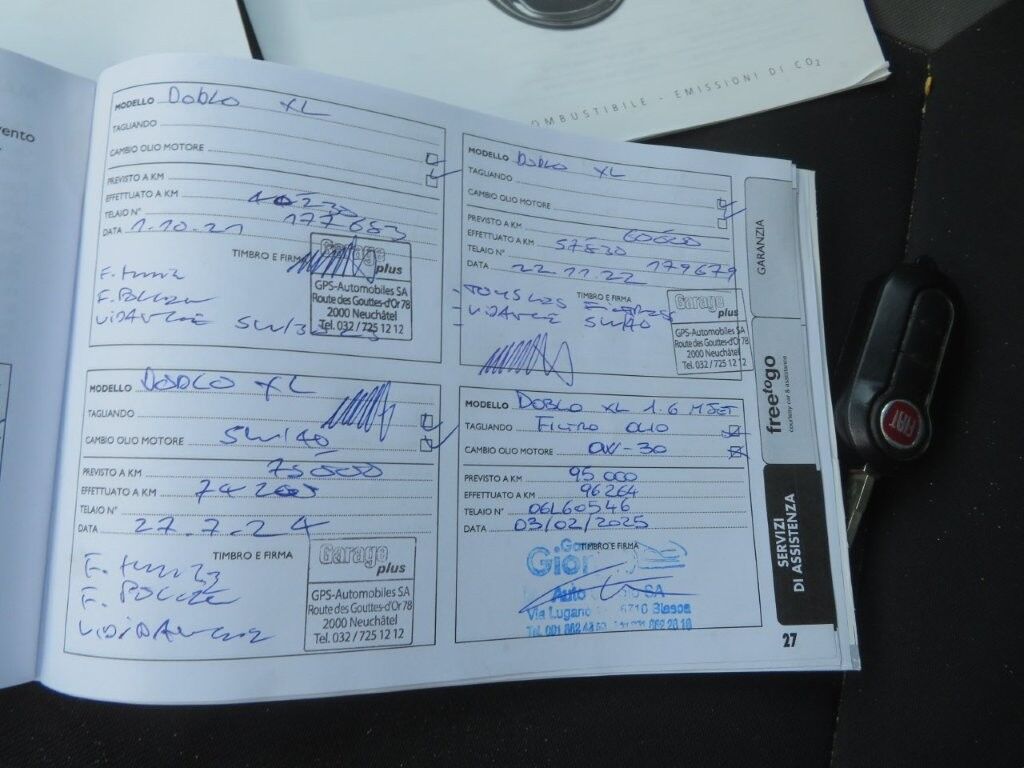 vento
COMBUSTIBILE - EMISSIONI DI CO2
MODELLO DOBLO XL
TAGLIANDO
CAMBIO OLIO MOTORE
PREVISTO A KM
EFFETTUATO A KM
TELAIO N° 177683
DATA 1.10.21
TIMBRO E FIRMA
Garage plus
GPS-Automobiles SA
Route des Gouttes-d'Or 78
2000 Neuchâtel
Tel. 032 / 725 12 12
VIDANGE 5W/30
MODELLO DOBLO XL
TAGLIANDO
CAMBIO OLIO MOTORE
PREVISTO A KM 60000
EFFETTUATO A KM 57830
TELAIO N° 179679
DATA 22.11.22
TIMBRO E FIRMA
VIDANGE 5W/40
Garage plus
GPS-Automobiles SA
Route des Gouttes-d'Or 78
2000 Neuchâtel
Tel. 032 / 725 12 12
MODELLO DOBLO XL
TAGLIANDO
CAMBIO OLIO MOTORE 5W/40
PREVISTO A KM 75000
EFFETTUATO A KM
TELAIO N°
DATA 27.7.24
TIMBRO E FIRMA
F. POLLEN
Garage plus
GPS-Automobiles SA
Route des Gouttes-d'Or 78
2000 Neuchâtel
Tel. 032 / 725 12 12
MODELLO DOBLO XL 1.6 MJET
TAGLIANDO FILTRO OLIO
CAMBIO OLIO MOTORE 0W-30
PREVISTO A KM 95000
EFFETTUATO A KM 96264
TELAIO N° 06L60546
DATA 03/02/2025
TIMBRO E FIRMA
Auto SA
Via Lugano 6710 Biasca
GARANZIA
freetogo
courtesy car & assistance
SERVIZI
DI ASSISTENZA
27
FIAT